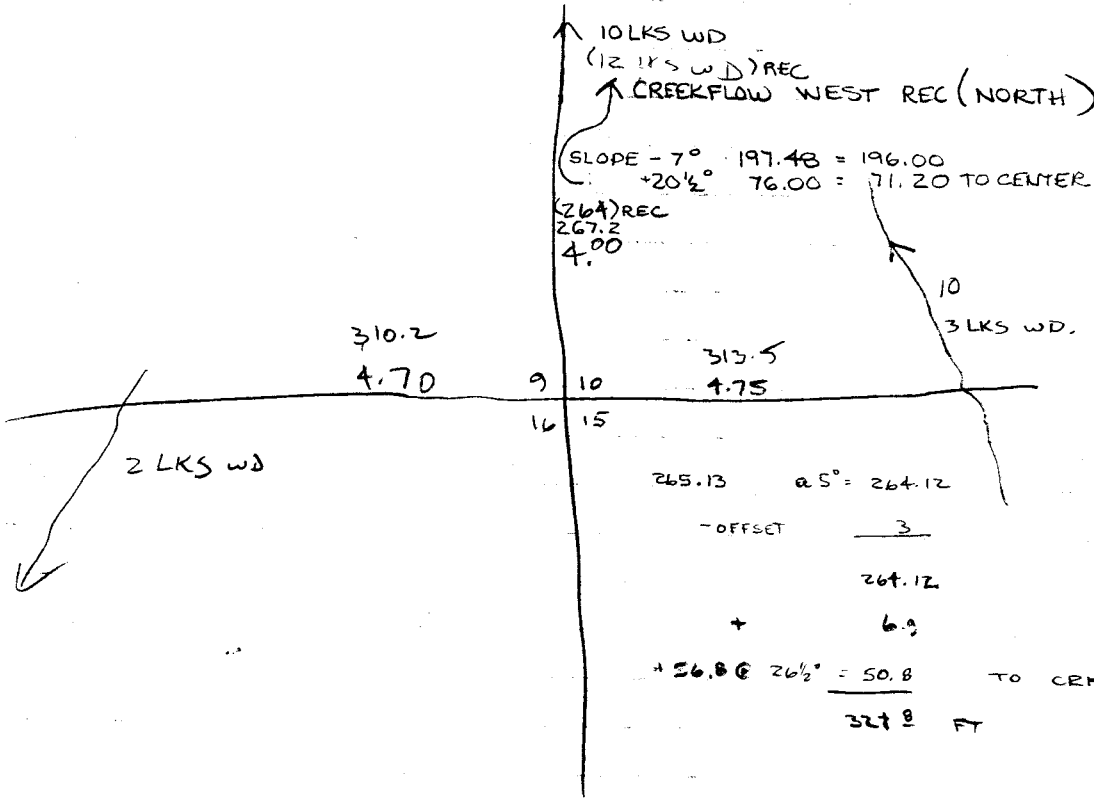 10 LKS WD
(12 LKS WD) REC
CREEKFLOW WEST REC (NORTH)
SLOPE - 7° 197.48 = 196.00
+20½° 76.00 = 71.20 TO CENTER
(264) REC
267.2
4.00
10
3 LKS WD.
310.2
4.70
313.5
4.75
9 10
16 15
2 LKS WD
265.13 @ 5° = 264.12
-OFFSET 3
264.12
+ 6.9
+ 56.8 @ 26½° = 50.8 TO
FT